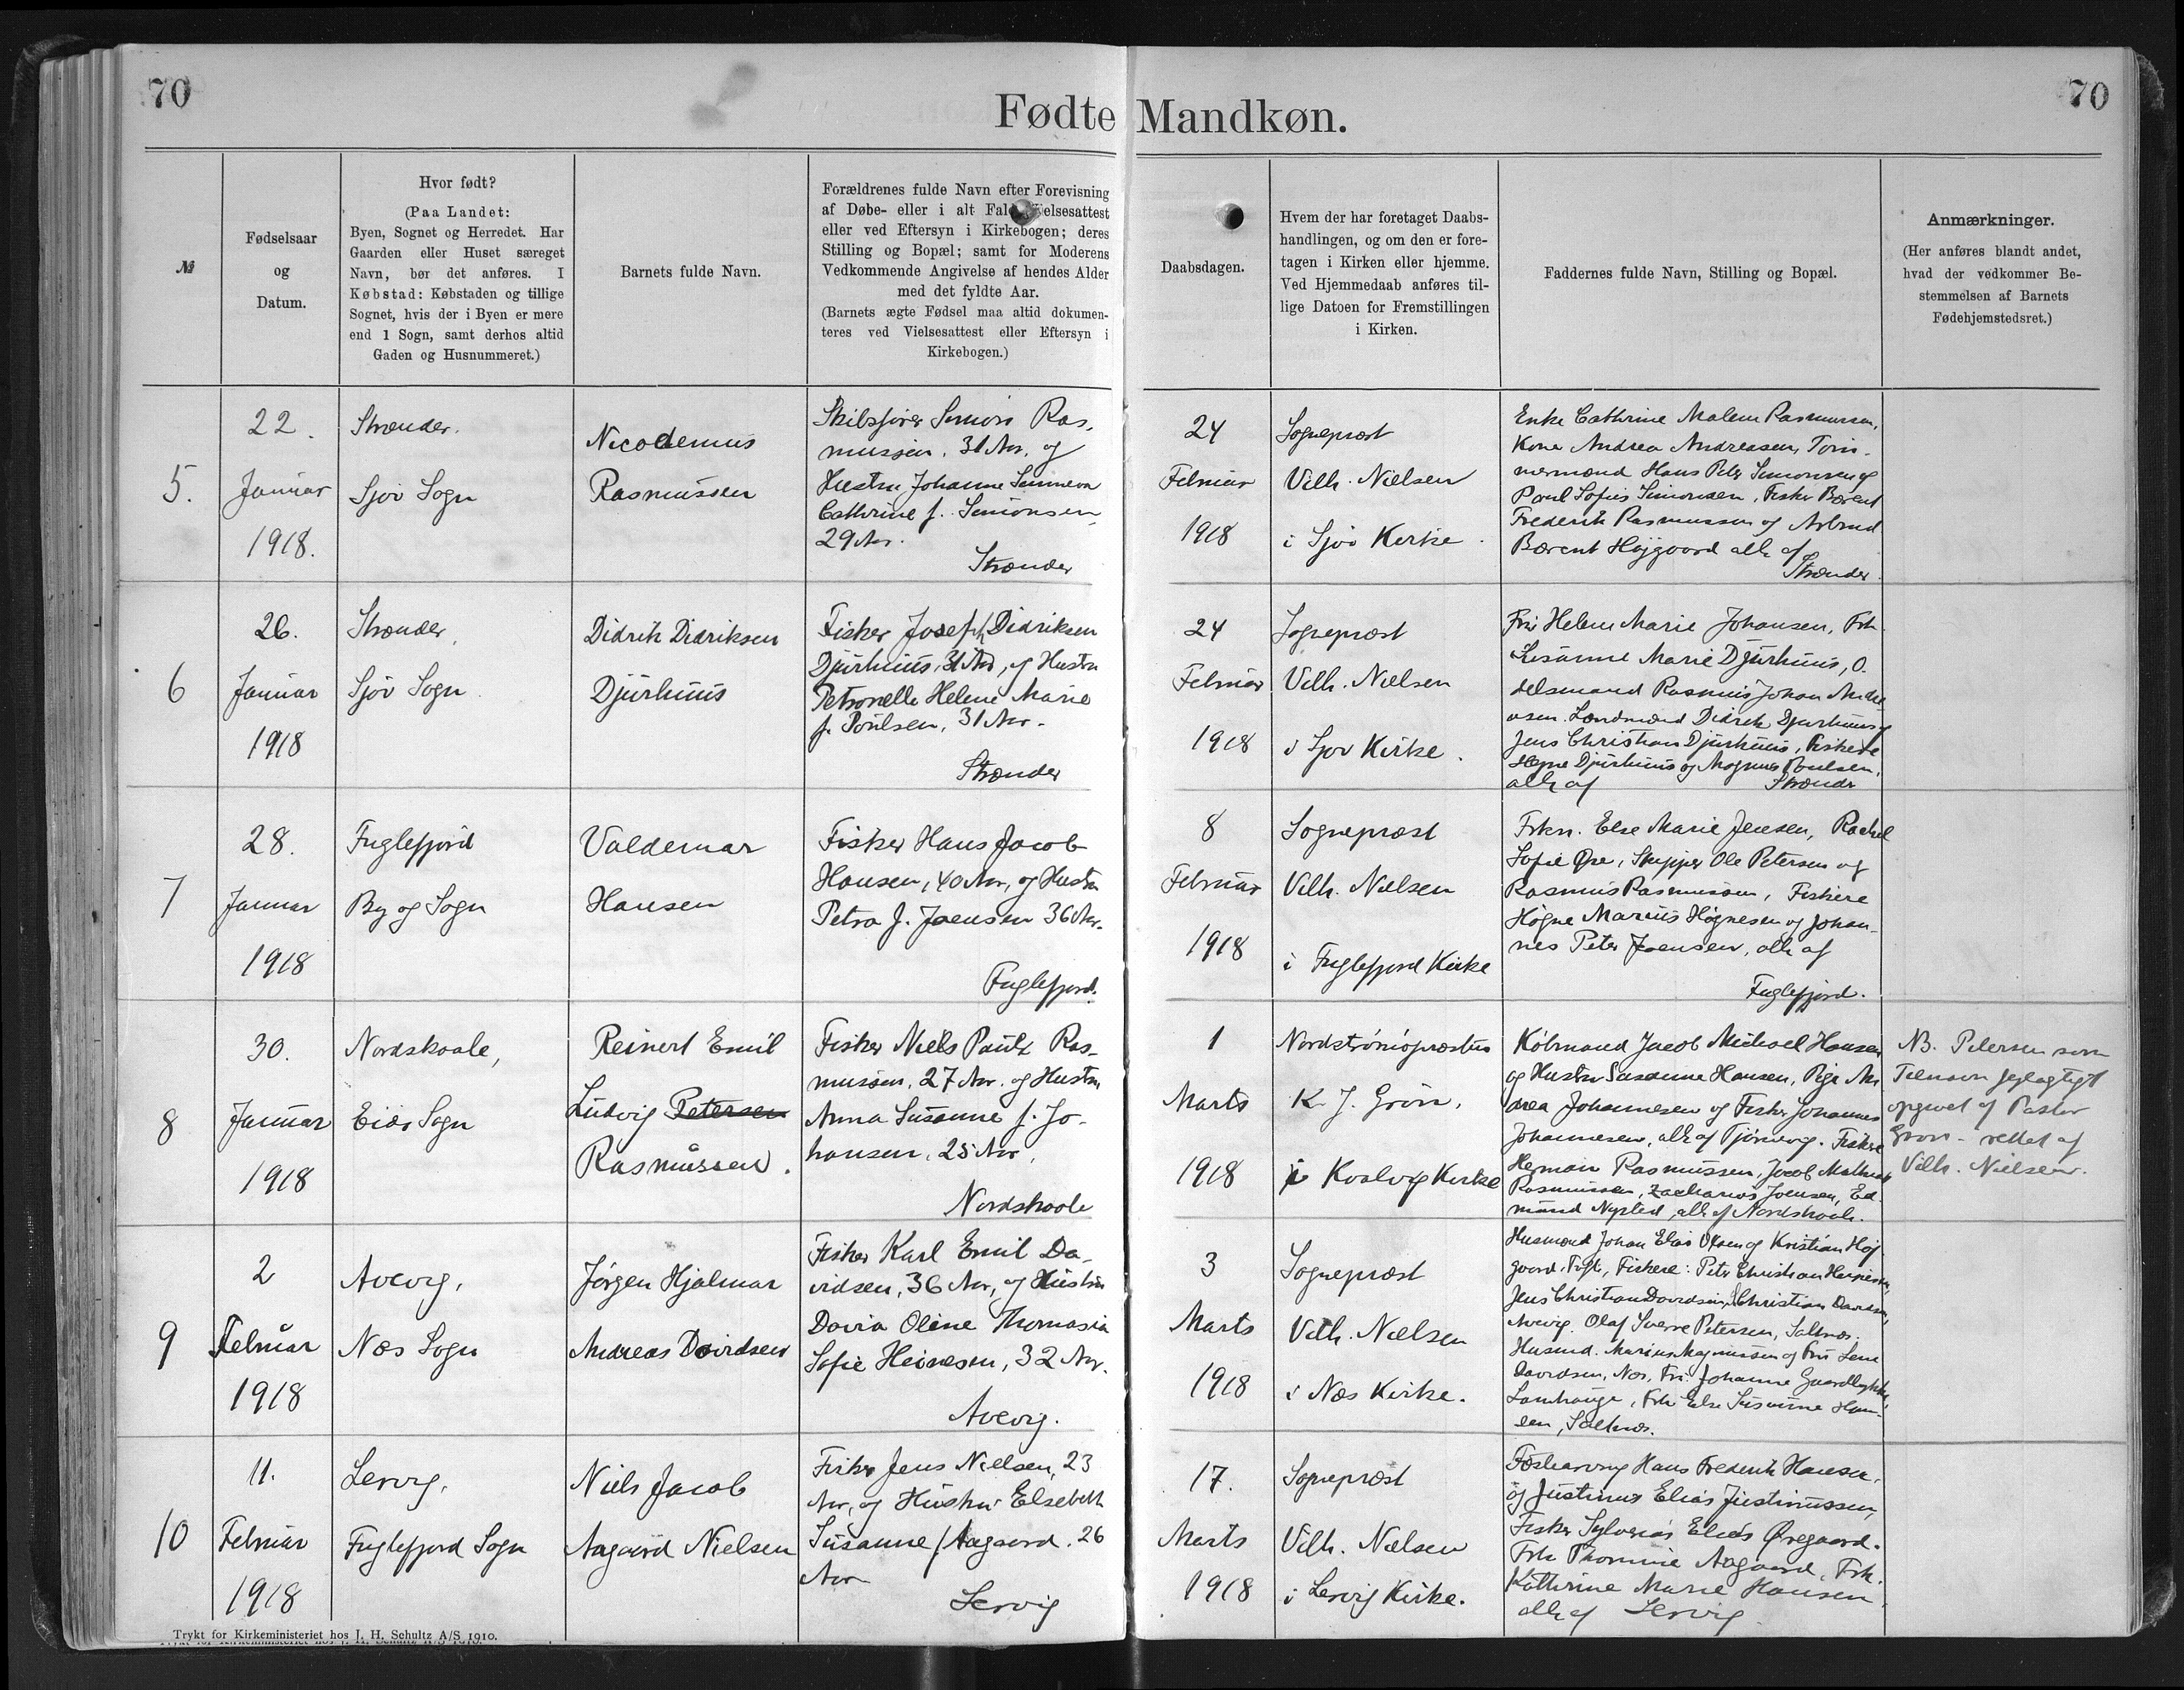 70
70
Fødte Mandkøn.
№
Fødselsaar
og
Datum.
Hvor født?
(Paa Landet:
Byen, Sognet og Herredet. Har
Gaarden eller Huset særeget
Navn, bør det anføres. I
Købstad: Købstaden og tillige
Sognet, hvis der i Byen er mere
end 1 Sogn, samt derhos altid
Gaden og Husnummeret.)
Barnets fulde Navn.
Forældrenes fulde Navn efter Forevisning
af Døbe- eller i alt Fald Vielsesattest
eller ved Eftersyn i Kirkebogen; deres
Stilling og Bopæl; samt for Moderens
Vedkommende Angivelse af hendes Alder
med det fyldte Aar.
(Barnets ægte Fødsel maa altid dokumen-
teres ved Vielsesattest eller Eftersyn i
Kirkebogen.)
Daabsdagen.
Hvem der har foretaget Daabs-
handlingen, og om den er fore-
tagen i Kirken eller hjemme.
Ved Hjemmedaab anføres til-
lige Datoen for Fremstillingen
i Kirken.
Faddernes fulde Navn, Stilling og Bopæl.
Anmærkninger.
(Her anføres blandt andet,
hvad der vedkommer Be-
stemmelsen af Barnets
Fødehjemstedsret.)
5.
22.
Januar
1918.
Strænder.
Sjov Sogn
Nicodemus
Rasmussen
Skibsfører Simon Ras-
mussen, 31 Aar, og
Hustru Johanne Sunneva
Cathrine f. Simonsen,
29 Aar.
Strænder
24
Februar
1918
Sognepræst
Vilh. Nielsen
i Sjov Kirke.
Enke Cathrine Malene Rasmussen,
Kone Andrea Andreasen, Tøm-
mermænd Hans Peter Simonsen og
Poul Sofus Simonsen, Fisker Bærent
Frederik Rasmussen og
Bærent Højgaard alle af
Strænder.
6
26.
Januar
1918
Strænder,
Sjov Sogn
Didrik Didriksen
Djurhuus
Fisker Josef Didriksen
Djurhuus, 31 Aar, og Hustru
Petronelle Helene Marie
f. Poulsen, 31 Aar.
Strænder
24
Februar
1918
Sognepræst
Vilh. Nielsen
i Sjov Kirke.
Fru Helene Marie Johansen, Frk.
Susanne Marie Djurhuus, O-
delsmand Rasmus Johan Andre-
asen. Landmænd Didrik Djurhuus og
Jens Christian Djurhuus, Fiskere
Djurhuus og Magnus Poulsen,
alle af Strænder
7
28.
Januar
1918
Fuglefjord
By og Sogn
Valdemar
Hansen
Fisker Hans Jacob
Hansen, 40 Aar, og Hustru
Petra f. Joensen 36 Aar.
Fuglefjord.
8
Februar
1918
Sognepræst
Vilh. Nielsen
i Fuglefjord Kirke
Frkn. Else Marie Jensen, Rachel
Sofie Øre, Skipper Ole Petersen og
Rasmus Rasmussen, Fiskere
Høgne Marius Høgnesen og Johan-
nes Peter Joensen, alle af
Fuglefjord.
8
30.
Januar
1918
Nordskaale,
Eide Sogn
Reinert Emil
Ludvig Petersen
Rasmussen.
Fisker Niels Paule Ras-
mussen, 27 Aar. og Hustru
Anna Susanne f. Jo-
hansen, 25 Aar,
Nordskaale
1
Marts
1918
Nordstrømøpræsten
K. J. Grøn.
i Kvalvig Kirke
Købmand Jacob Michael Hansen
og Hustru Susanne Hansen, Pige An-
drea Johannesen og Fisker Johannes
Johannesen, alle af Tjørnevig. Fiskere
Herman Rasmussen, Jacob Mathias
Rasmussen, Zacharias Joensen, Ed-
mund Nysted, alle af Nordskaale.
NB. Petersen som
Tilnavn fejlagtigt
opgivet af Pastor
Grøn - rettet af
Vilh. Nielsen.
9
2
Februar
1918
Avevig,
Næs Sogn
Jørgen Hjalmar
Andreas Davidsen
Fisker Karl Emil Da-
vidsen, 36 Aar, og Hustru
Davia Oline Thomasia
Sofie Heinesen, 32 Aar.
Avevig.
3
Marts
1918
Sognepræst
Vilh. Nielsen
i Næs Kirke.
Husmænd Johan Elias Olsen og Kristian Høj-
gaard, Fiskere: Peter Christian Heinesen,
Jens Christian Davidsen, Christian Davidsen,
Avevig. Olaf Sverre Petersen, Saltnæs.
Husmd. Marius Magnussen og Fru Lene
Davidsen, Næs, Fru Johanne Gaardlykke,
Lamhauge, Frk Else Susanne Han-
sen, Saltnæs.
10
11.
Februar
1918
Lervig,
Fuglefjord Sogn
Niels Jacob
Aagaard Nielsen
Fisker Jens Nielsen, 23
Aar, og Hustru Elsebeth
Susanne f. Aagaard. 26
Aar
Lervig
17.
Marts
1918
Sognepræst
Vilh. Nielsen
i Lervig Kirke.
Hans Frederik Hansen,
og Justinus Elias Justinussen,
Fisker Sylverius Elias Øregaard.
Frk Thomine Aagaard, Frk.
Kathrine Marie Hansen,
alle af Lervig.
Trykt for Kirkeministeriet hos J. H. Schultz A/S 1910.